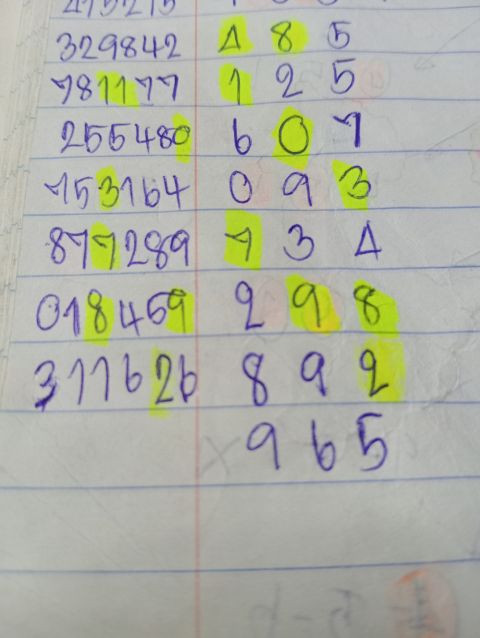 329842 4 8 5
781177 1 2 5
255480 6 0 7
753164 0 9 3
877289 7 3 4
018459 2 9 8
311626 8 9 2
9 6 5